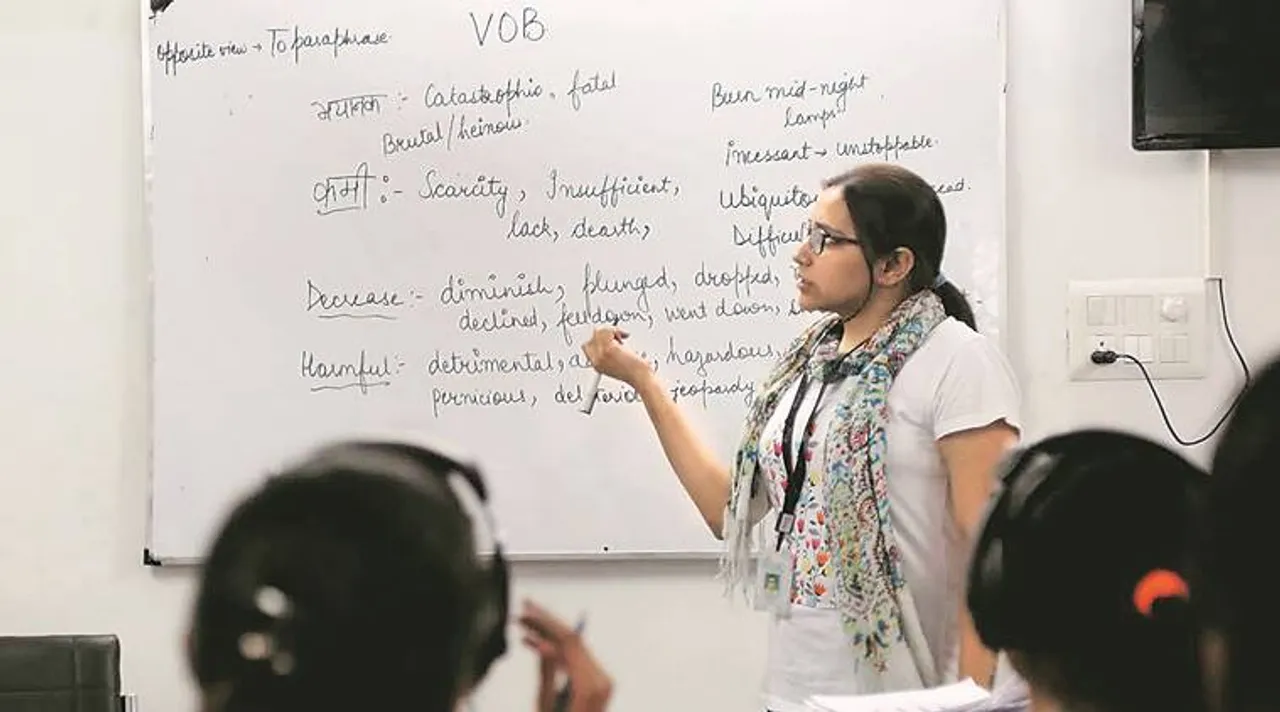 VOB
Opposite view → To paraphrase
भयानक :- Catastrophic, fatal
Brutal/heinous
कमी :- Scarcity, Insufficient,
lack, dearth,
Decrease :- diminish, plunged, dropped,
declined, fell down, went down,
Harmful :- detrimental, hazardous,
pernicious, jeopardy
Burn mid-night
lamps
incessant → unstoppable